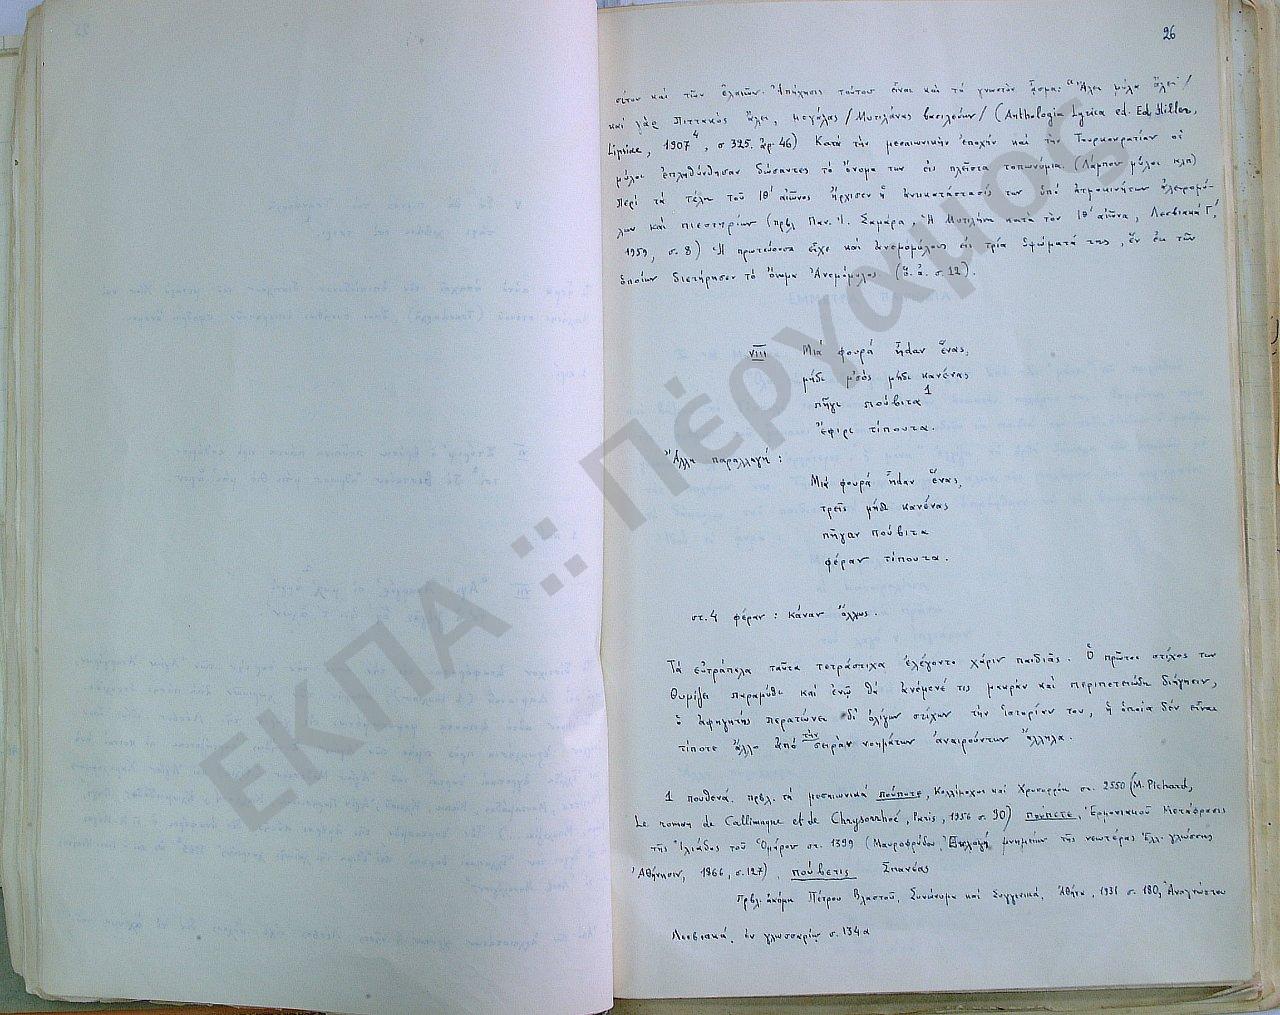 26
σίτου και τῶν ἐλαιῶν. Ἀπήχησις τούτου εἶναι καὶ τὸ γνωστὸν ᾆσμα: "Ἄλει μύλα ἄλει /
καὶ γὰρ Πιττακὸς ἄλει, μεγάλας / Μυτιλάνας βασιλεύων / (Anthologia Lyrica ed. Ed. Hiller,
Lipsiae, 1907⁴, σ 325. ἀρ. 46) Κατὰ τὴν μεσαιωνικὴν ἐποχὴν καὶ τὴν Τουρκοκρατίαν οἱ
μύλοι ἐπληθύνθησαν δώσαντες τὸ ὄνομα των εἰς πλεῖστα τοπωνύμια. (Λάμπου μύλοι κλπ)
Περὶ τὰ τέλη τοῦ ΙΘ' αἰῶνος ἤρχισεν ἡ ἀντικατάστασίς των ὑπὸ ἀτμοκινήτων ἀλευρομύ-
λων καὶ πιεστηρίων (πρβλ Παν. Ι. Σαμάρα, Ἡ Μυτιλήνη κατὰ τὸν ΙΘ' αἰῶνα, Λεσβιακά Γ',
1959, σ. 8) Ἡ πρωτεύουσα εἶχε καὶ ἀνεμομύλους εἰς τρία ὑψώματά της, ἓν ἐκ τῶν
ὁποίων διετήρησεν τὸ ὄνομα Ἀνεμόμυλος (ἔ. ἀ. σ. 12).
VIII Μιά φουρά ἦdαν ἕνας,
μήδι μ'σός μήδι κανένας
πῆγι πούβιτα 1
ἔφιρι τίπουτα.
Ἄλλη παραλλαγή:
Μιά φουρά ἦdαν ἕνας,
τρεῖς μήδι κανένας
πῆγαν πούβιτα
φέραν τίπουτα.
στ. 4 φέραν: κάναν ἄλλως.
Τὰ εὐτράπελα ταῦτα τετράστιχα ἐλέγοντο χάριν παιδιᾶς. Ὁ πρῶτος στίχος των
θυμίζει παραμύθι καὶ ἐνῷ θὰ ἀνέμενέ τις μακρὰν καὶ περιπετειώδη διήγησιν,
ὁ ἀφηγητὴς περατώνει δι' ὀλίγων στίχων τὴν ἱστορίαν του, ἡ ὁποία δὲν εἶναι
τίποτε ἄλλο ἀπὸ τὴν σειρὰν νοημάτων ἀναιρούντων ἄλληλα.
1 πουθενά. πρβλ. τὰ μεσαιωνικά πούποτε, Καλλίμαχος καὶ Χρυσορρόη στ. 2550 (M. Pichard,
Le roman de Callimaque et de Chrysorrhoé, Paris, 1956 σ. 90) πούπετε, Ἑρμονιακοῦ Μετάφρασις
τῆς Ἰλιάδος τοῦ Ὁμήρου στ. 1399 (Μαυροφρύδου, Ἐκλογὴ μνημείων τῆς νεωτέρας Ἑλλ. γλώσσης
Ἀθήνησιν, 1866, σ. 127), πούβετις Σπανέας
Πρβλ. ἀκόμα Πέτρου Βλαστοῦ, Συνώνυμα καὶ Συγγενικά, Ἀθήνα, 1931 σ. 180, Ἀναγνώστου
Λεσβιακά, ἐν γλωσσαρίῳ σ. 134α
ΕΚΠΑ :: Πέργαμος